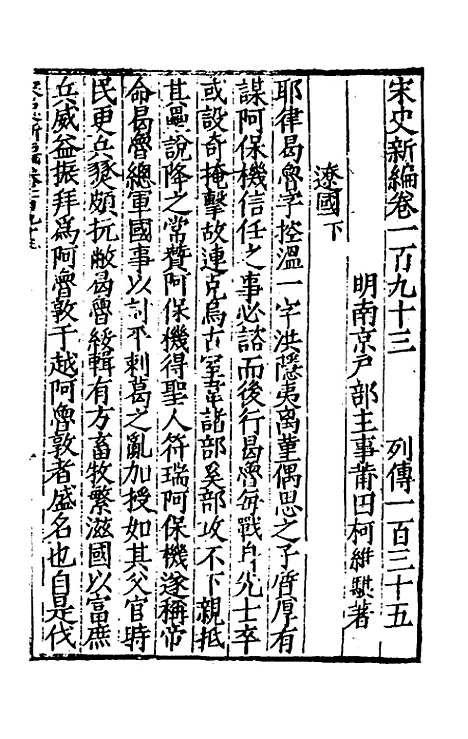 宋史新編卷一百九十三 列傳一百三十五
明南京戸部主事莆田柯維騏著
遼國下
耶律曷魯字控溫一字洪隱夷离菫偶思之子質厚有
謀阿保機信任之事必諮而後行曷魯每戰身先士卒
或設奇掩擊故連克烏古室韋諸部奚部攻不下親抵
其壘說降之常贊阿保機得聖人符瑞阿保機遂稱帝
命曷魯總軍國事以討平剌葛之亂加授如其父官時
民更兵燹頗抗敝曷魯綏輯有方畜牧繁滋國以富庶
兵威益振拜爲阿魯敦于越阿魯敦者盛名也自是伐